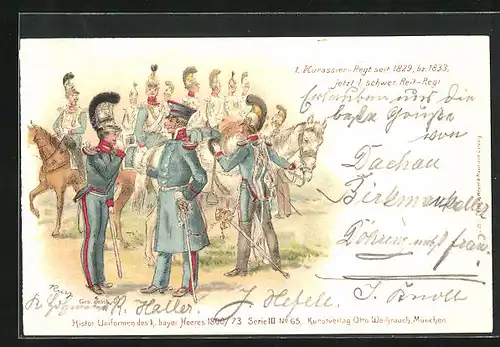 1. Kürassier-Regt seit 1829, bz. 1833,
jetzt 1 schwer. Reit-Regt
Erlauben uns die
beste Grüße
von
Dachau
Döhring nebst Frau
R. Haller J. Hefele J. Knoll
Histor. Uniformen des k. bayer Heeres 1800/73 Serie III No 65. Kunstverlag Otto Weihrauch, München